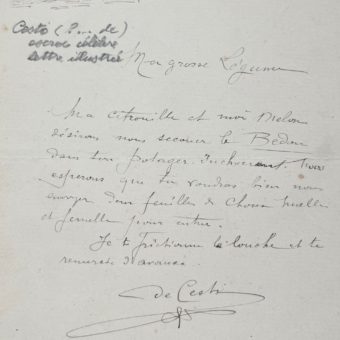 Cesti (P... de)
escroc célèbre
lettre illustrée
Ma grosse Légume
Ma citrouille et moi Melon
désirons nous secouer le Bedon
dans ton potager. Nous
espérons que tu voudras bien nous
envoyer deux feuilles de choux mâle
et femelle pour entrer.
Je te frictionne la louche et te
remercie d'avance
de Cesti